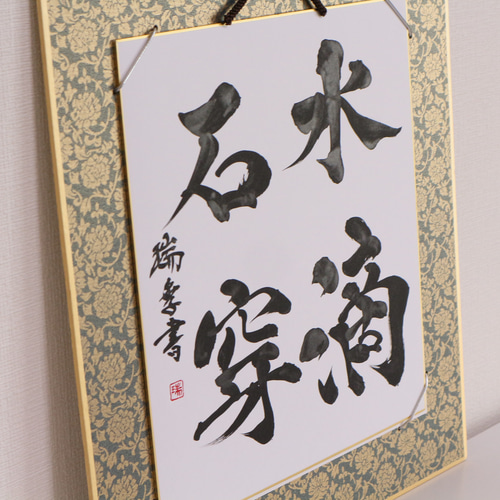 水滴
石穿
瑞書
瑞